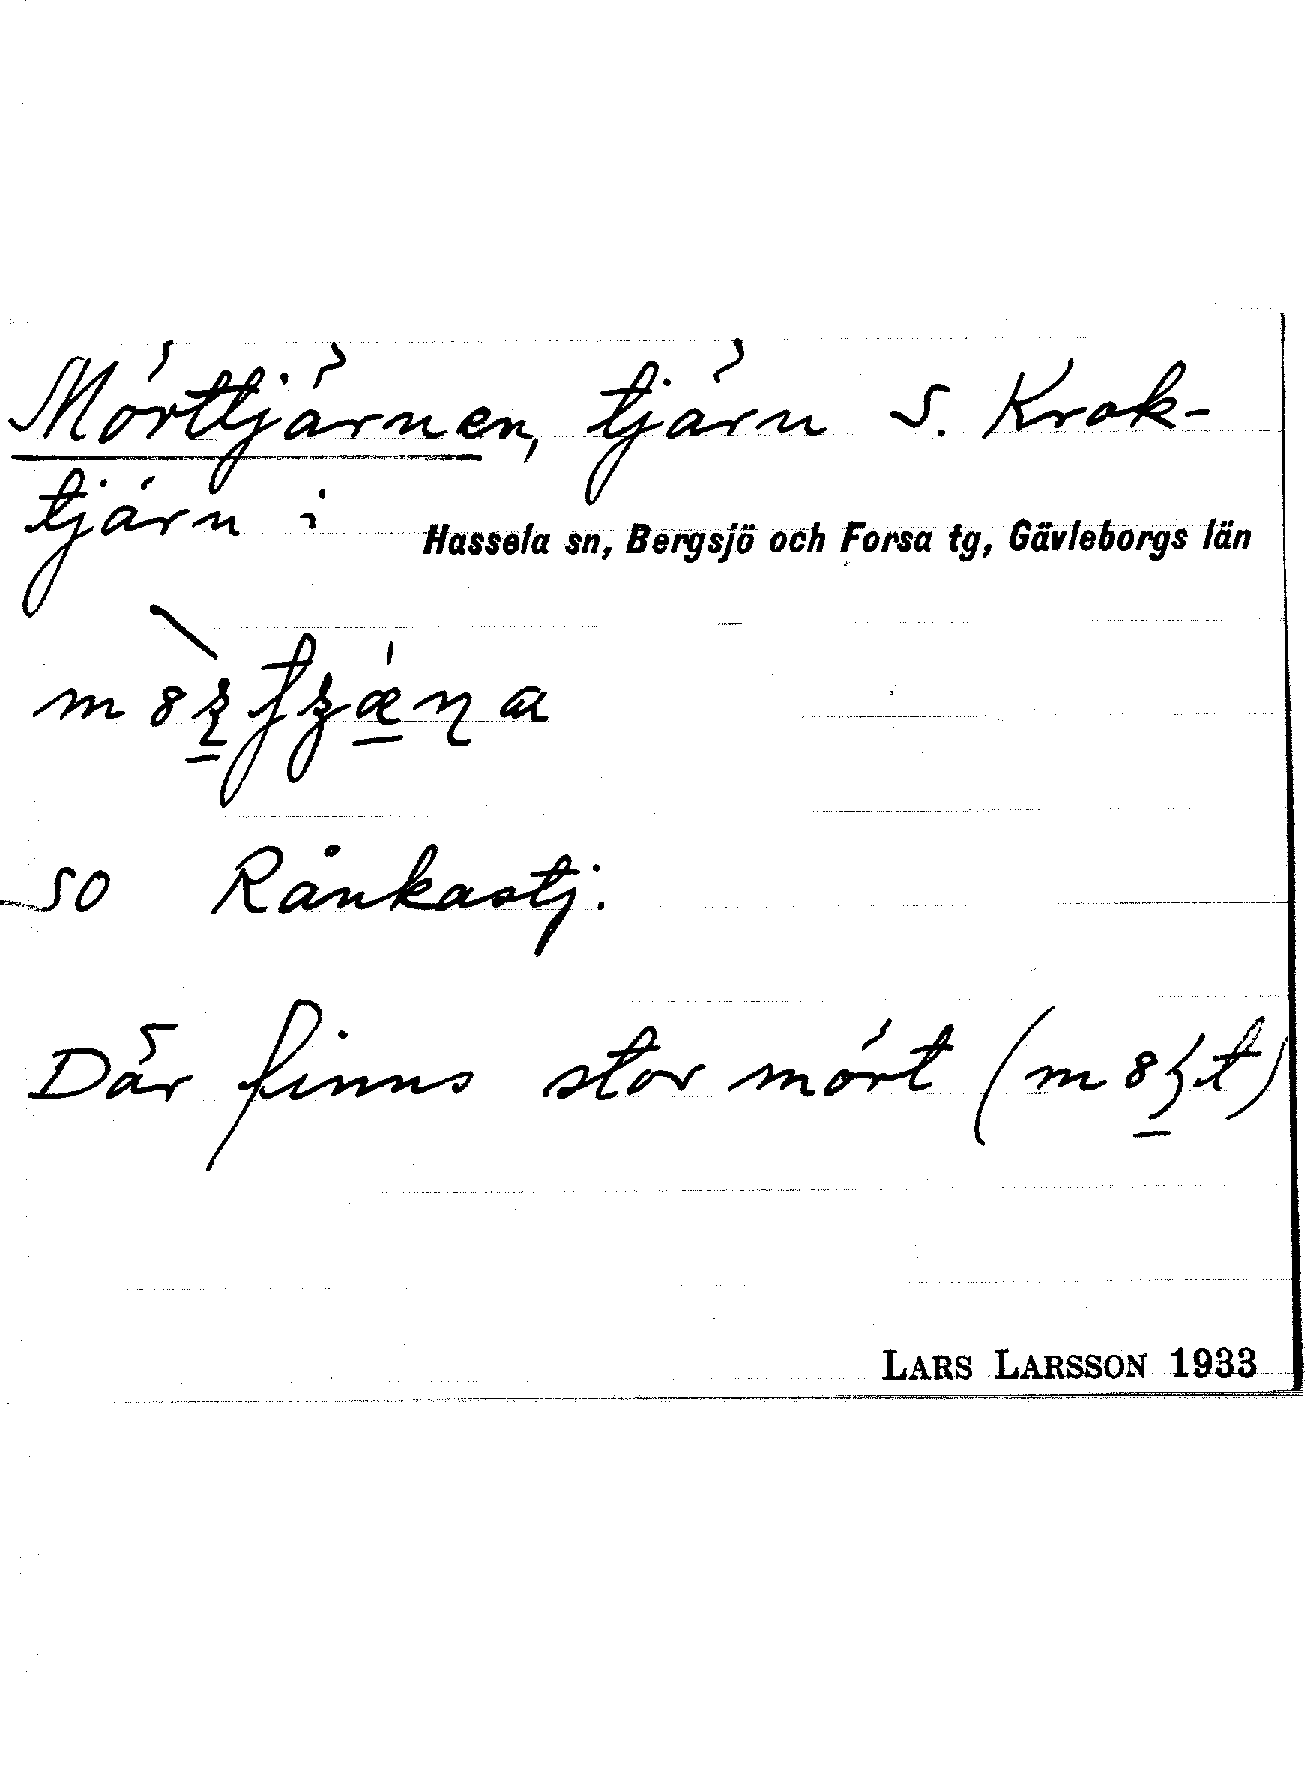 Mörttjärnen, tjärn S. Krok-
tjärn i
Hassela sn, Bergsjö och Forsa tg, Gävleborgs län
so Rånkastj.
Där finns stor mört
LARS LARSSON 1933